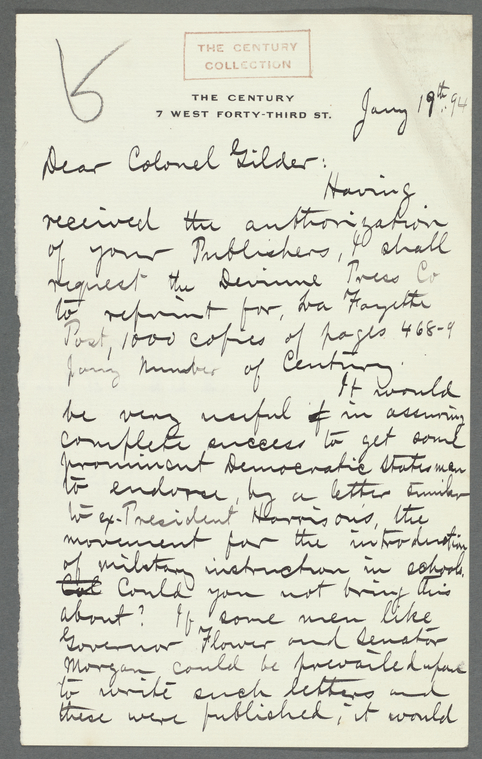 THE CENTURY
COLLECTION
THE CENTURY
7 WEST FORTY-THIRD ST.
Jany 19th. 94
Dear Colonel Gilder:
Having
received the authorization
of your Publishers, I shall
request the Devinne Press Co
to reprint for, La Fayette
Post, 1000 copies of pages 468-9
Jany Number of Century.
It would
be very useful in assuring
complete success to get some
prominent Democratic statesman
to endorse, by a letter similar
to ex-President Harrison's, the
movement for the introduction
of military instruction in schools.
Col Could you not bring this
about? If some men like
Governor Flower and Senator
Morgan could be prevailed upon
to write such letters and
these were published, it would